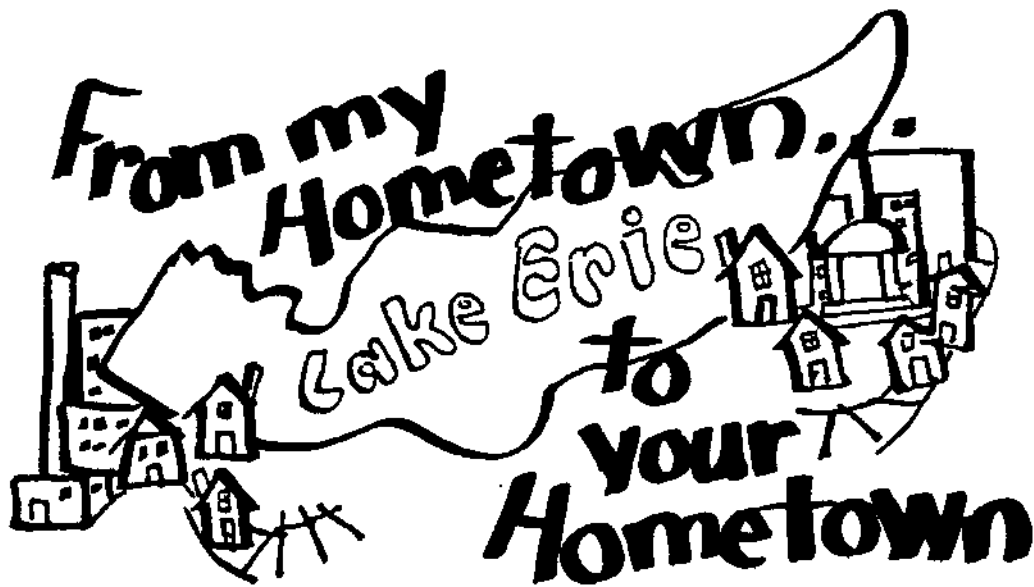 From my
Hometown...
Lake Erie
to
your
Hometown